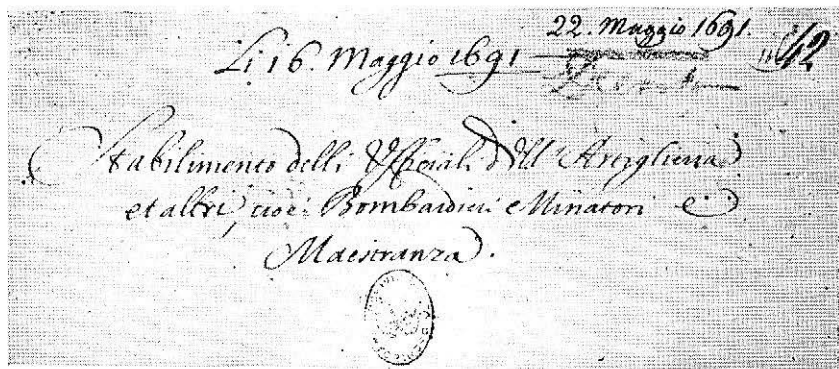 22. Maggio 1691.
Li 16. Maggio 1691
42
Stabilimento delli Ufficiali dell' Artiglieria
et altri, cioè: Bombardieri e Minatori e
Maestranza.